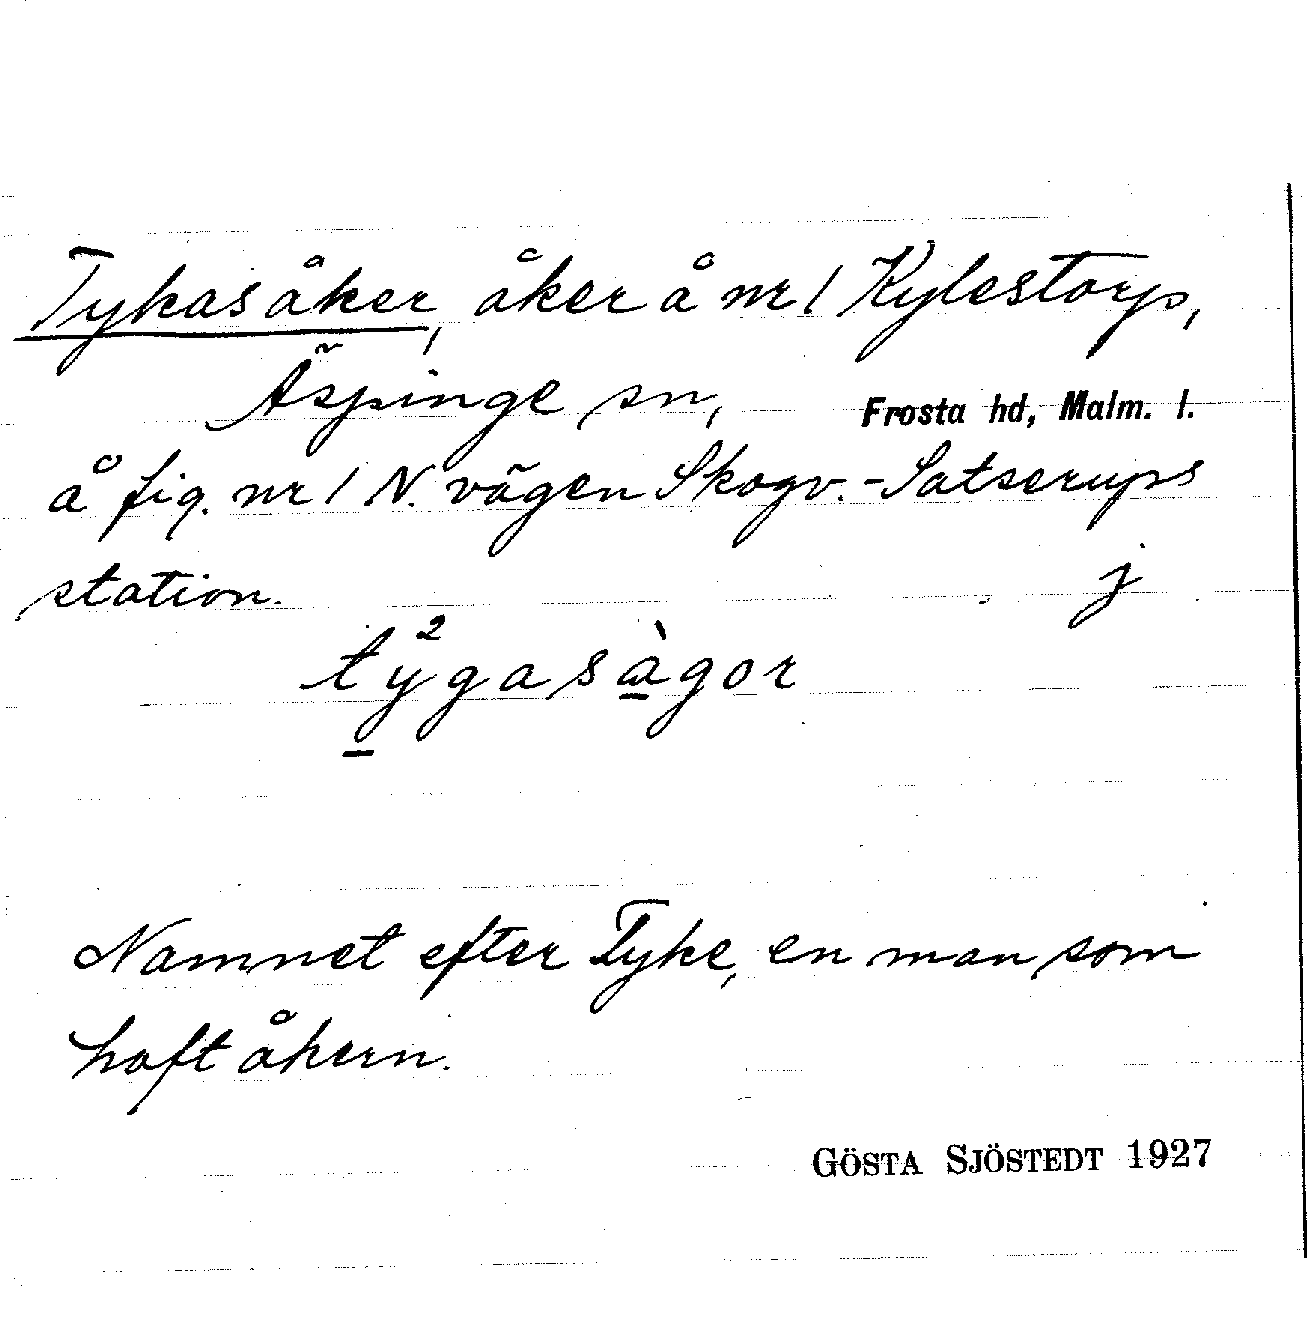 Tykasåker, åker å nr 1 Kylestorp,
Äspinge sn, Frosta hd, Malm. l.
å fig. nr 1 N. vägen Skogv.-Satserups
station. j
ty²gasàgor
Namnet efter Tyke, en man som
haft åkern.
GÖSTA SJÖSTEDT 1927